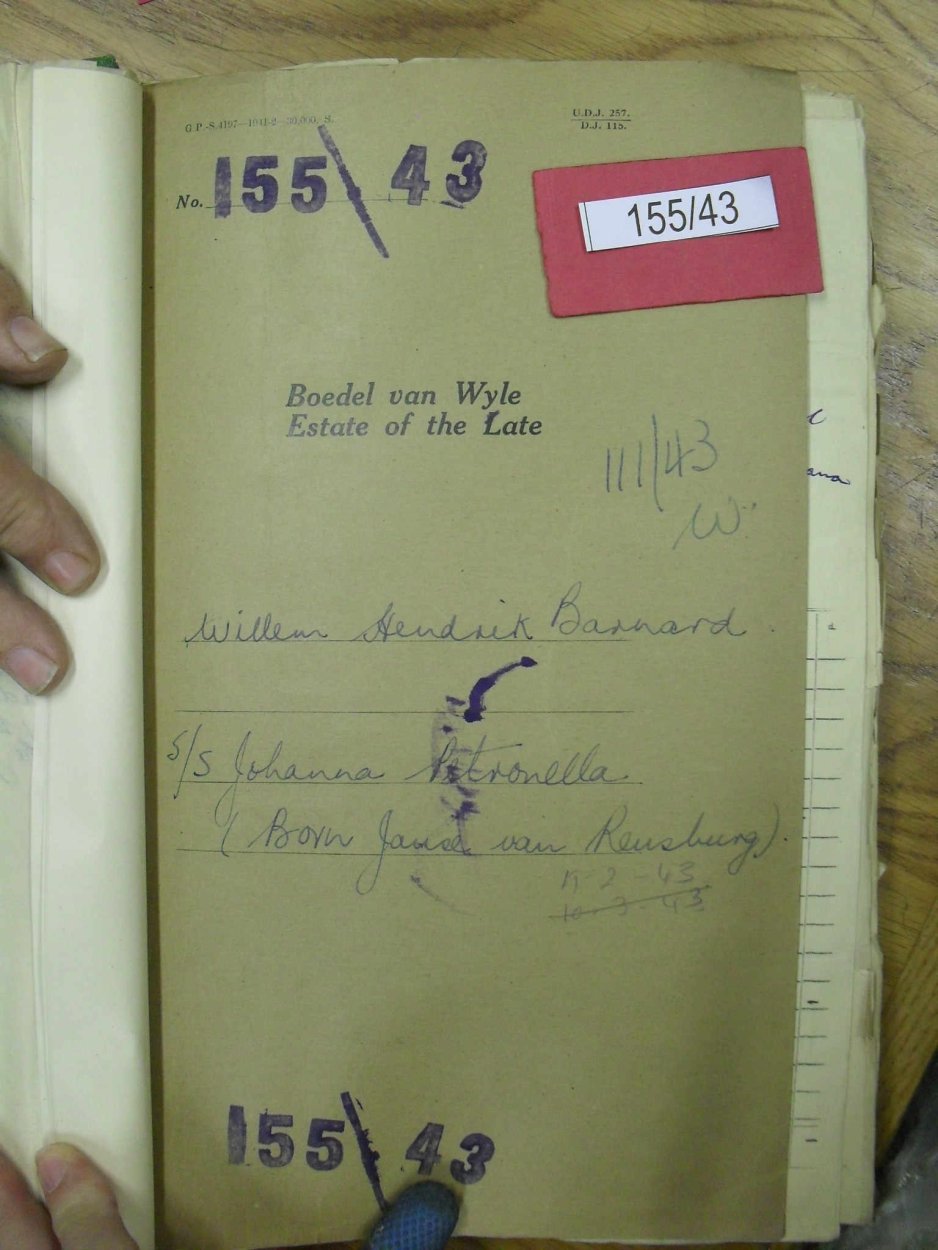 G.P.-S.4197—1941-2—30,000. S.
U.D.J. 257.
D.J. 115.
No. 155\43
155/43
Boedel van Wyle
Estate of the Late
111/43
W
Willem Hendrik Barnard.
S/S Johanna Petronella
(Born Janse van Rensburg).
2-43
10-3-43
155\43